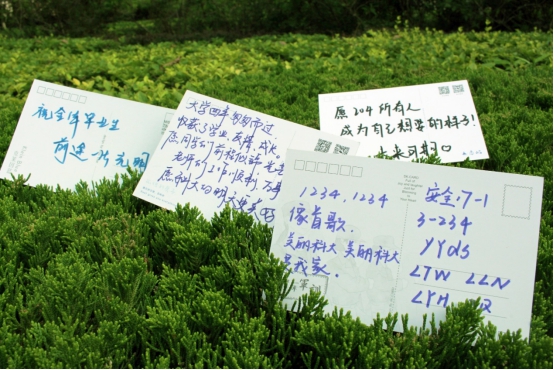 祝全体毕业生
前途一片光明
大学四年匆匆而过
收获了学业、友情、成长
愿同学们前程似锦,
老师们工作顺利,万事
愿科大的明天更美好
愿204所有人
成为自己想要的样子!
未来可期
1234,1234
像首歌.
美丽科大 美丽科大
是我家.
安全.17-1
3-234
YYds
LTW LLN
LYH